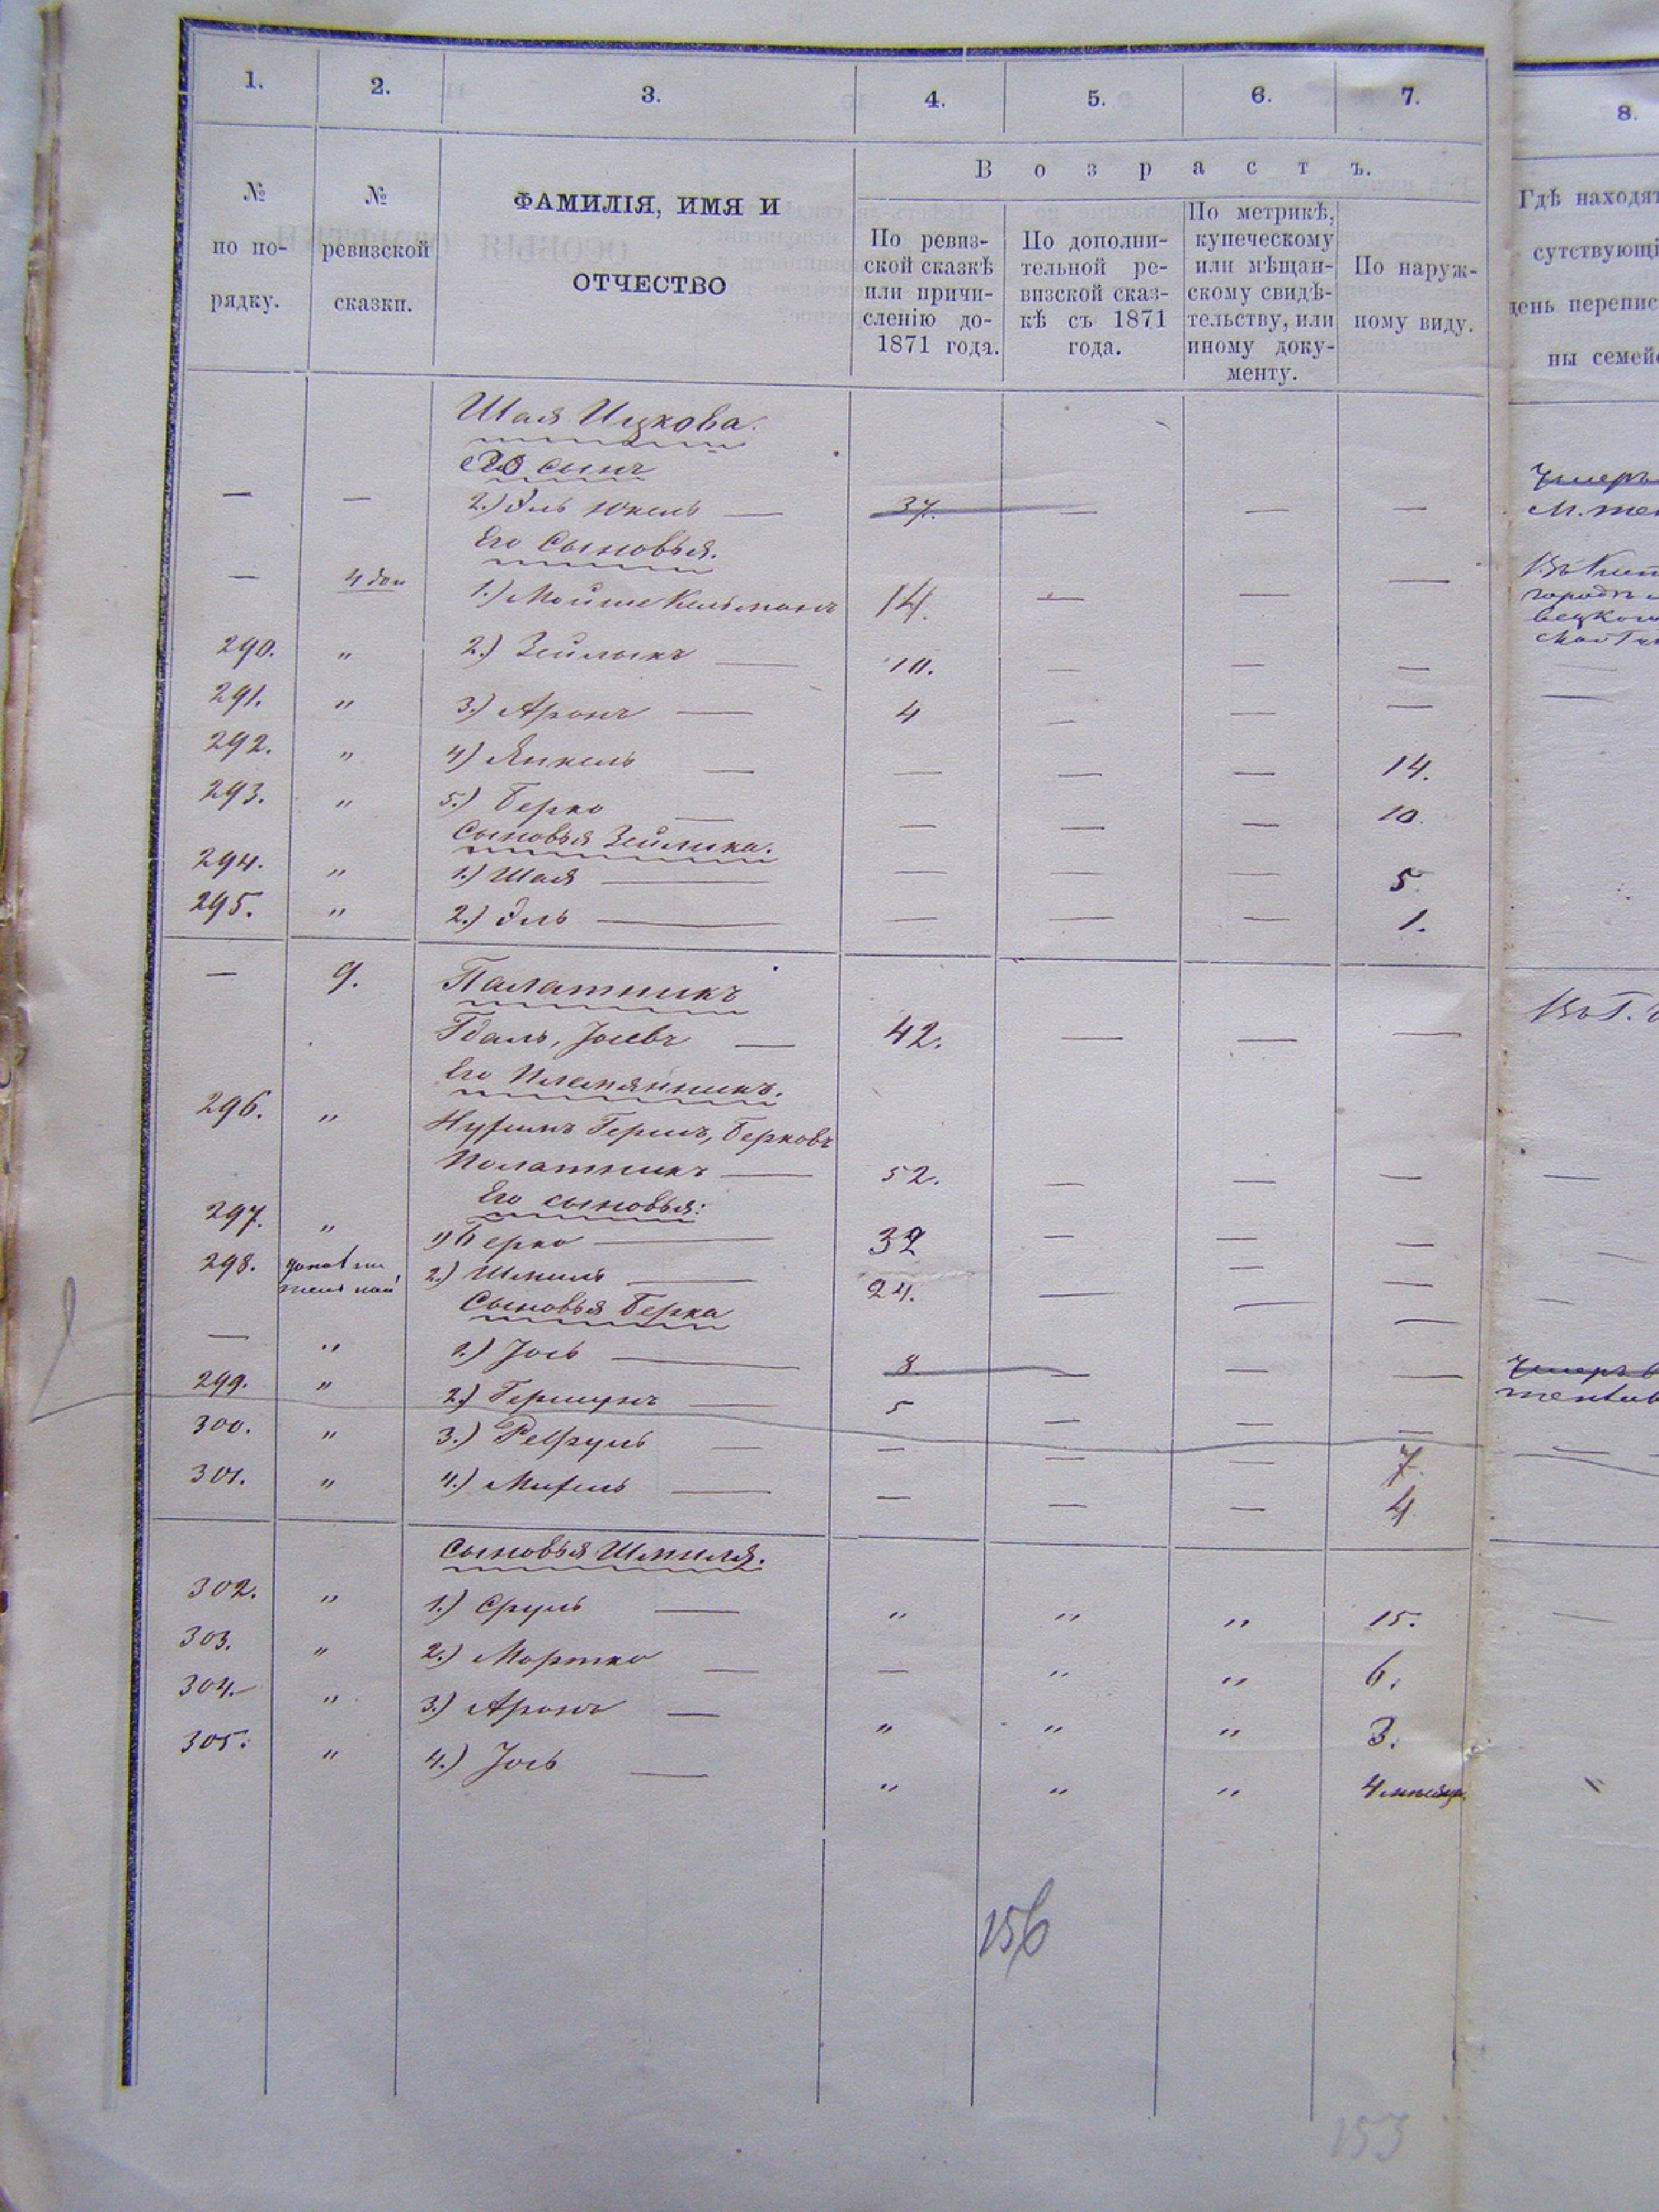 1. 2. 3. 4. 5. 6. 7. 8.
В о з р а с т ъ.
№ по по-
рядку.
№
ревизской
сказки.
ФАМИЛІЯ, ИМЯ И
ОТЧЕСТВО
По ревиз-
ской сказкѣ
или причи-
сленію до-
1871 года.
По дополни-
тельной ре-
визской сказ-
кѣ съ 1871
года.
По метрикѣ,
купеческому
или мѣщан-
скому свидѣ-
тельству, или
иному доку-
менту.
По наруж-
ному виду.
Гдѣ находят
сутствующі
день перепис
ны семей
Шая Ицкова.
сынъ
— — 2.) Эль Юкель — 37. — — —
Его Сыновья.
— 4 доп 1.) Мойше Кельманъ 14. — — —
290. " 2.) Зейлыкъ — 10. — — —
291. " 3.) Аронъ — 4 — — —
292. " 4) Янкель — — — — 14.
293. " 5.) Берко — — — — 10.
Сыновья Зейлика.
294. " 1.) Шая — — — — 5.
295. " 2.) Эль — — — — 1.
— 9. Палатникъ
Гдаль, Іосевъ — 42. — — —
Его Племянникъ.
296. " Нухимъ Гершъ, Берковъ
Полатникъ — 52. — — —
Его сыновья:
297. " 1) Берко — 32 — — —
298. 2.) Шмиль — 24. — — —
Сыновья Берка
— " 1.) Іось — 8. — — —
299. " 2.) Гершунъ — 5 — — —
300. " 3.) — — — — 7.
301. " 4.) — — — — 4.
Сыновья Шмиля.
302. " 1.) Сруль — " " " 15.
303. " 2.) Мортко — — " " 6.
304. " 3.) Аронъ — " " " 3.
305. " 4.) Іось — " " " 4 мѣсяц.
156
153